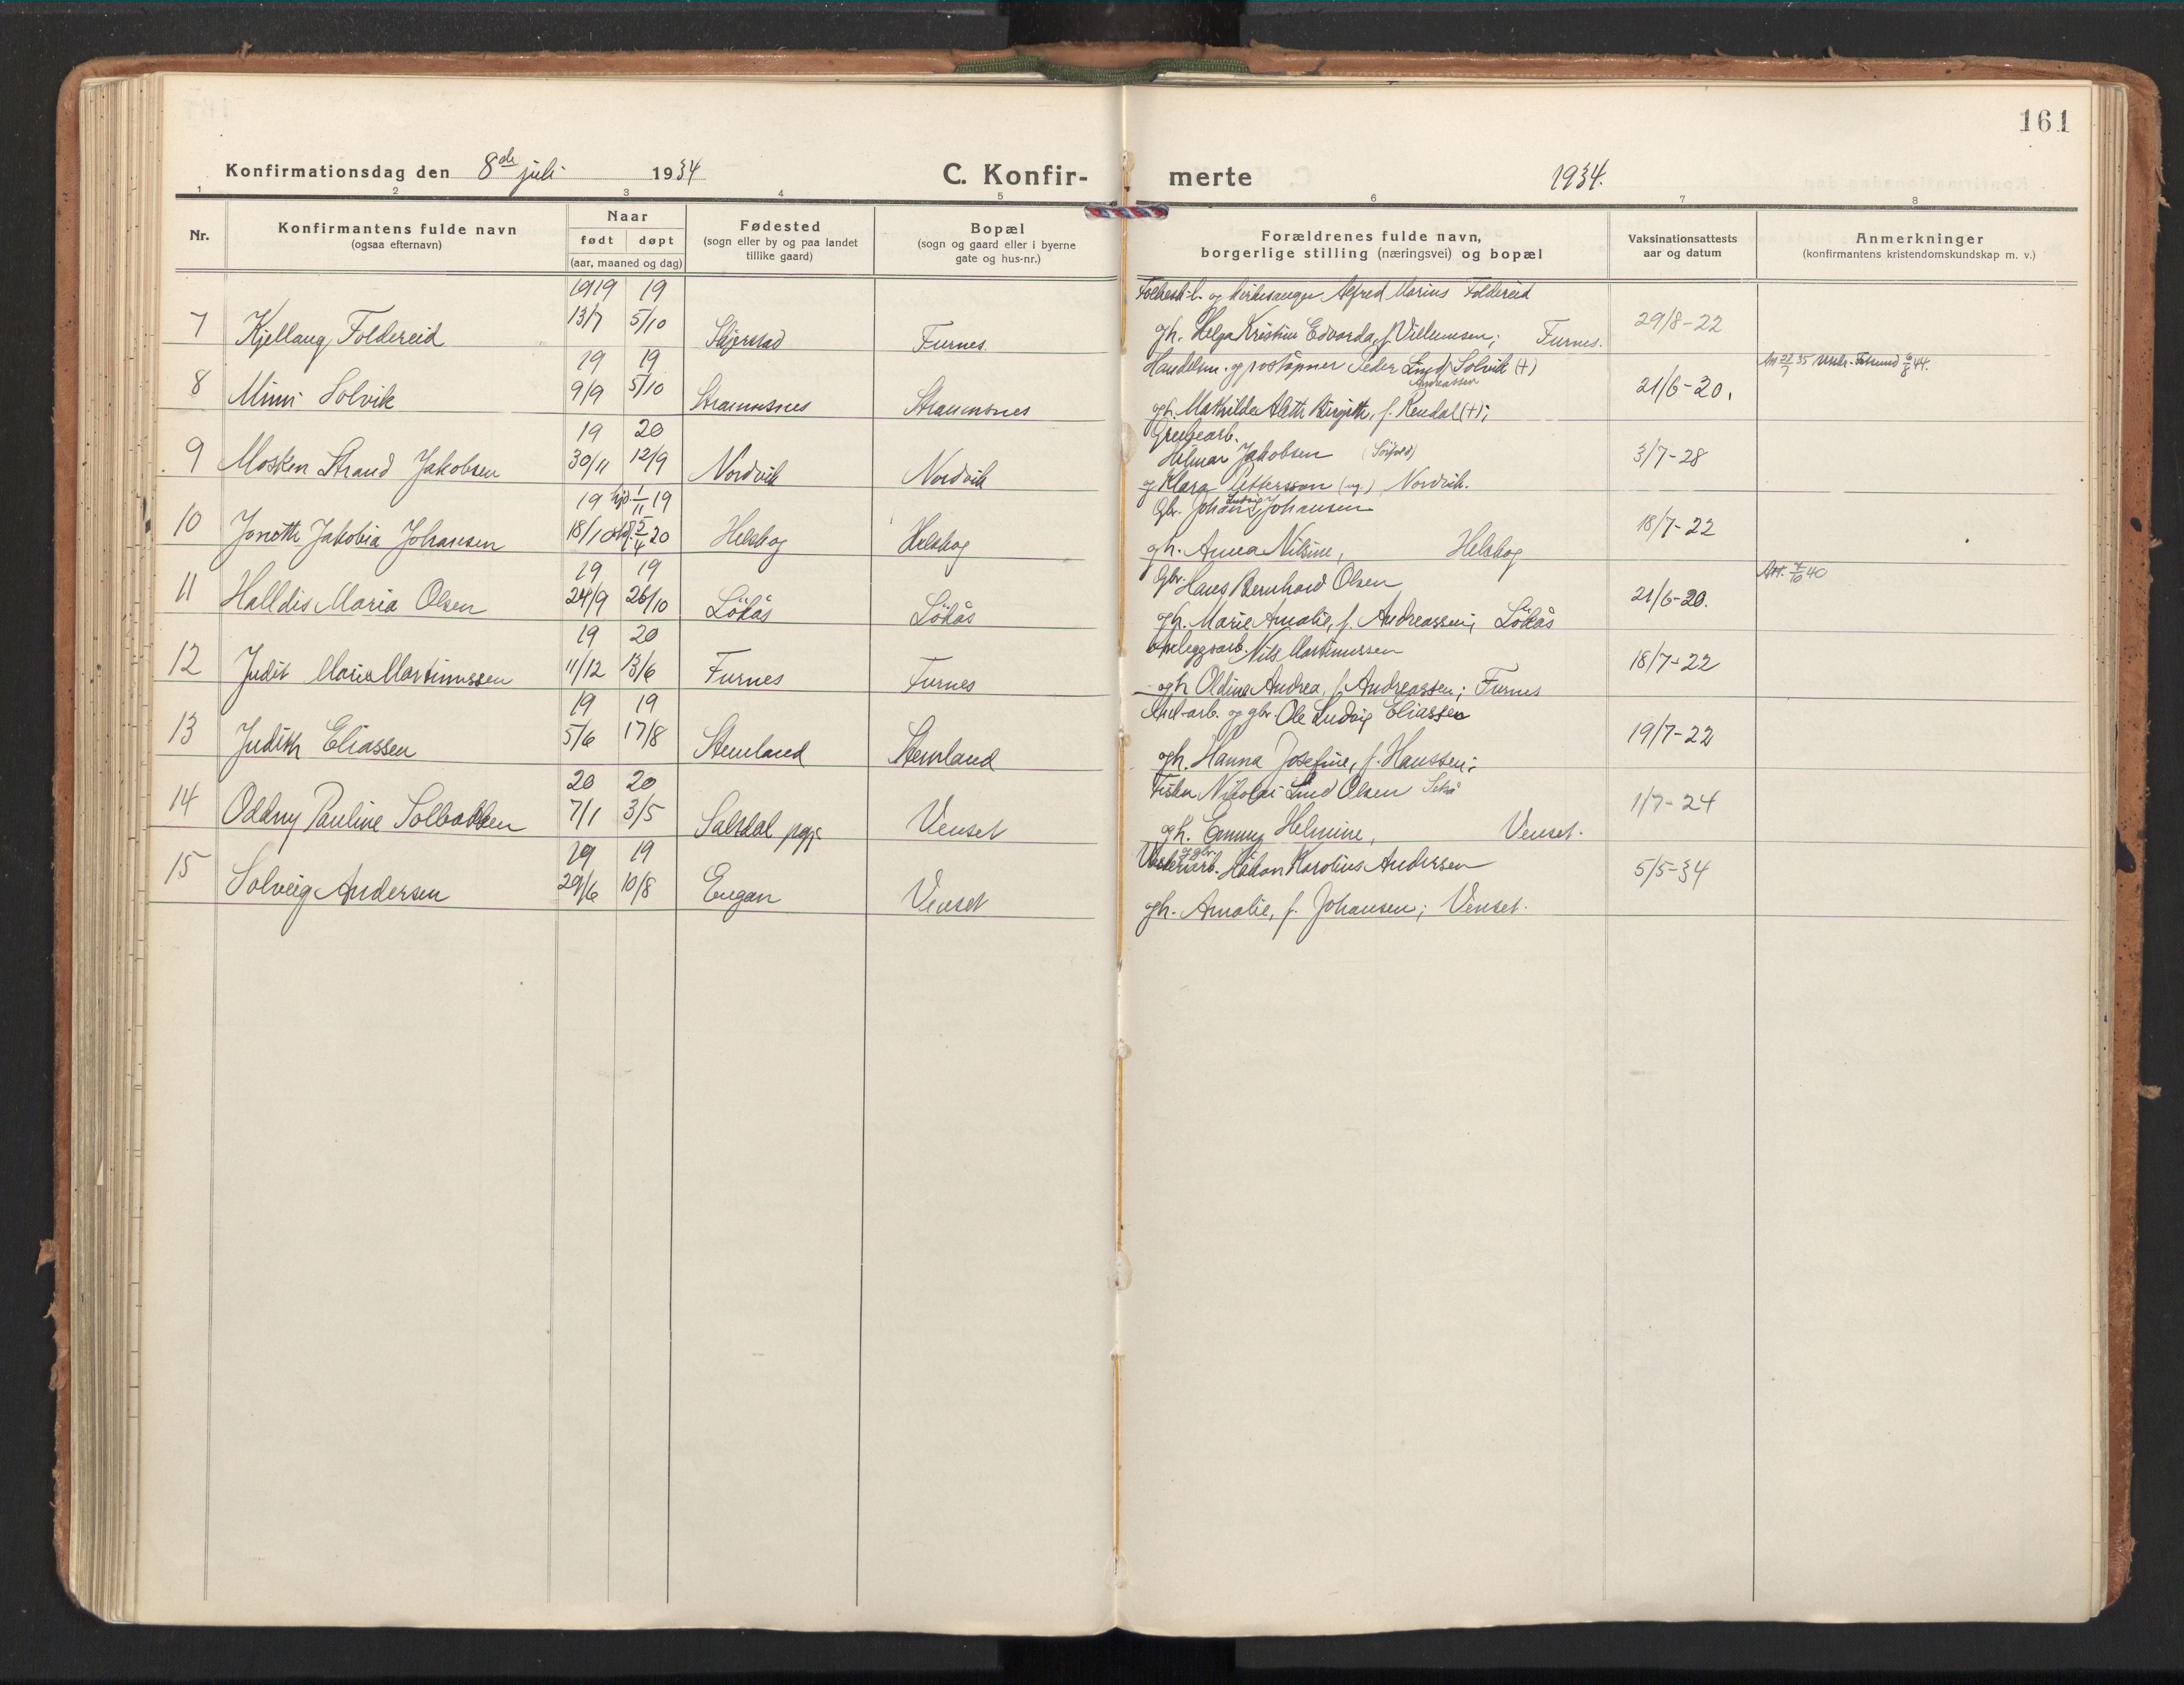 161
Konfirmationsdag den 8de juli 1934 C. Konfir- merte 1934.
1 2 3 4 5 6 7 8
Nr. Konfirmantens fulde navn (ogsaa efternavn) Naar født døpt (aar, maaned og dag) Fødested (sogn eller by og paa landet tillike gaard) Bopæl (sogn og gaard eller i byerne gate og hus-nr.) Forældrenes fulde navn, borgerlige stilling (næringsvei) og bopæl Vaksinationsattests aar og datum Anmerkninger (konfirmantens kristendomskundskap m. v.)
1919 19 og kirkesanger Alfred Marius Foldereid
7 Kjellaug Foldereid 13/7 5/10 Skjerstad Furnes. gh. Helga Kristine Edvarda, f. Villumsen; Furnes. 29/8-22
19 19 Handelsm. og poståpner Peder Lind Solvik (+)
Andreassen
8 Mimi Solvik 9/9 5/10 Straumsnes Straumsnes gh. Mathilde Aleth Birgitte, f. Rendal (+); 21/6-20.
19 20 Grubearb.
Hilmar Jakobsen
9 Mosken Strand Jakobsen 30/11 12/9 Nordvik Nordvik og Klara Pettersson (ug.) Nordvik. 3/7-28
19 hjd. 1/11 19 Gbr. Johan Ludvig Johansen
10 Jonette Jakobia Johansen 18/10 5/4 20 Helskog Helskog gh. Anna Nilsine, Helskog 18/7-22
19 19 Gbr. Hans Bernhard Olsen Att. 7/10 40
11 Halldis Maria Olsen 24/9 26/10 Løkås Løkås gh. Marie Amalie, f. Andreassen; Løkås 21/6-20.
19 20 Anleggsarb. Nils Martinussen
12 Judit Marie Martinussen 11/12 13/6 Furnes Furnes gh Oldine Andrea, f. Andreassen; Furnes 18/7-22
19 19 og gbr. Ole Ludvig Eliassen
13 Judith Eliassen 5/6 17/8 Stemland Stemland gh. Hanna Josefine, f. Hanssen; 19/7-22
20 20 Fisker Nikolai Lind Olsen
14 Oddny Pauline Solbakken 7/1 3/5 Saltdal pgj. Venset gh. Emmy Helmine, Venset. 1/7-24
19 19 og gbr. Håkon Karolius Andersen
15 Solveig Andersen 29/6 10/8 Engan Venset gh. Amalie, f. Johansen; Venset. 5/5-34